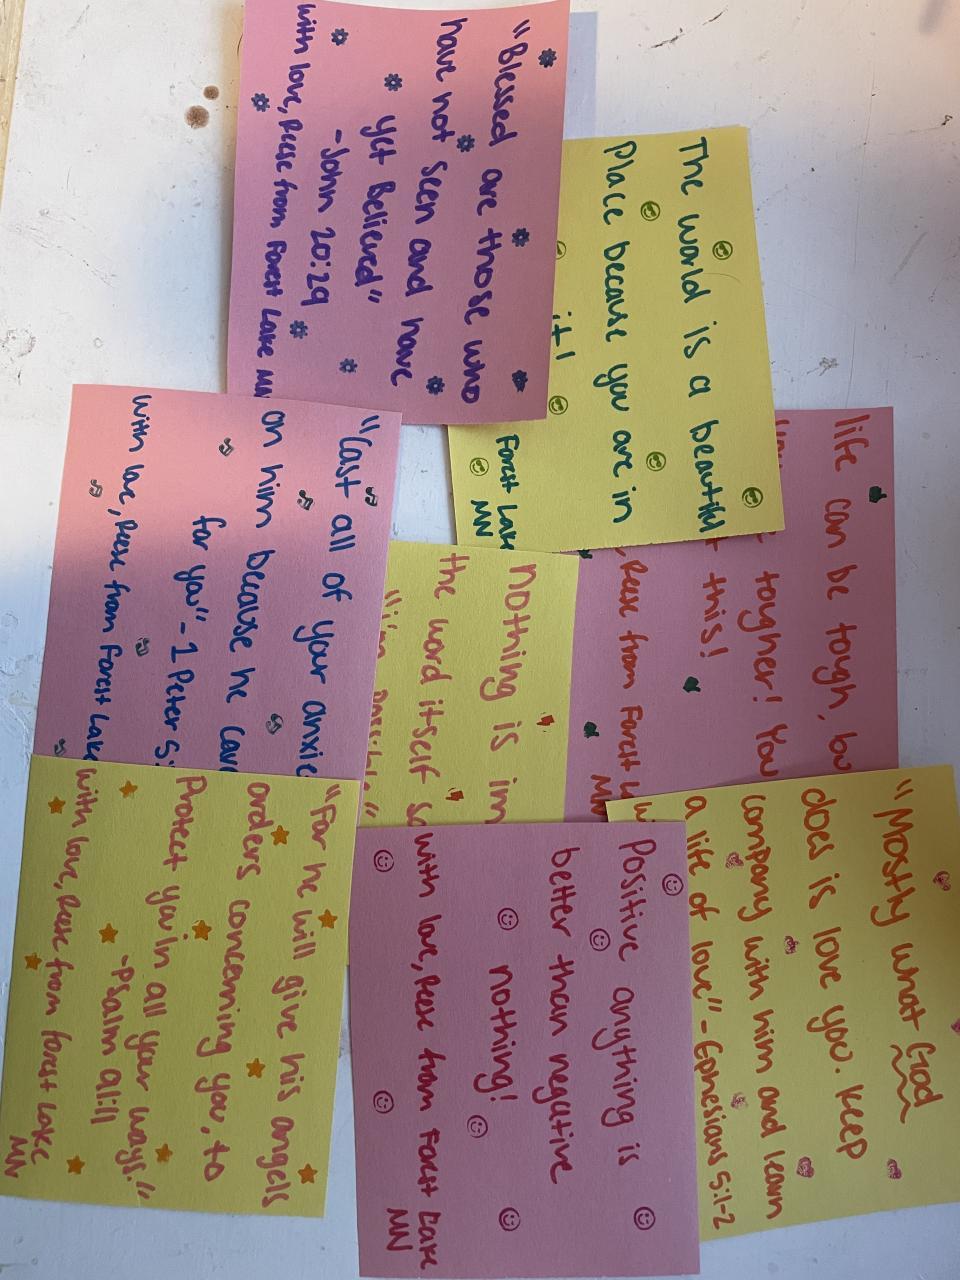 "Blessed are those who
have not seen and have
yet Believed"
-John 20:29
with love, Reese from Forest Lake MN
The world is a beautiful
Place because you are in
it!
Forest Lake
MN
life can be tough,
tougher! You
this!
Reese from Forest
MN
"Cast all of your
on him because he
for you" - 1 Peter 5:
with love, Reese from Forest Lake
nothing is
the word itself
"i'm possible"
"Mostly what God
does is love you. Keep
company with him and learn
a life of love" - Ephesians 5:1-2
"For he will give his angels
orders concerning you, to
Protect you in all your ways."
-Psalm 91:11
with love, Reese from forest Lake
MN
Positive anything is
better than negative
nothing!
with love, Reese from Forest Lake
MN